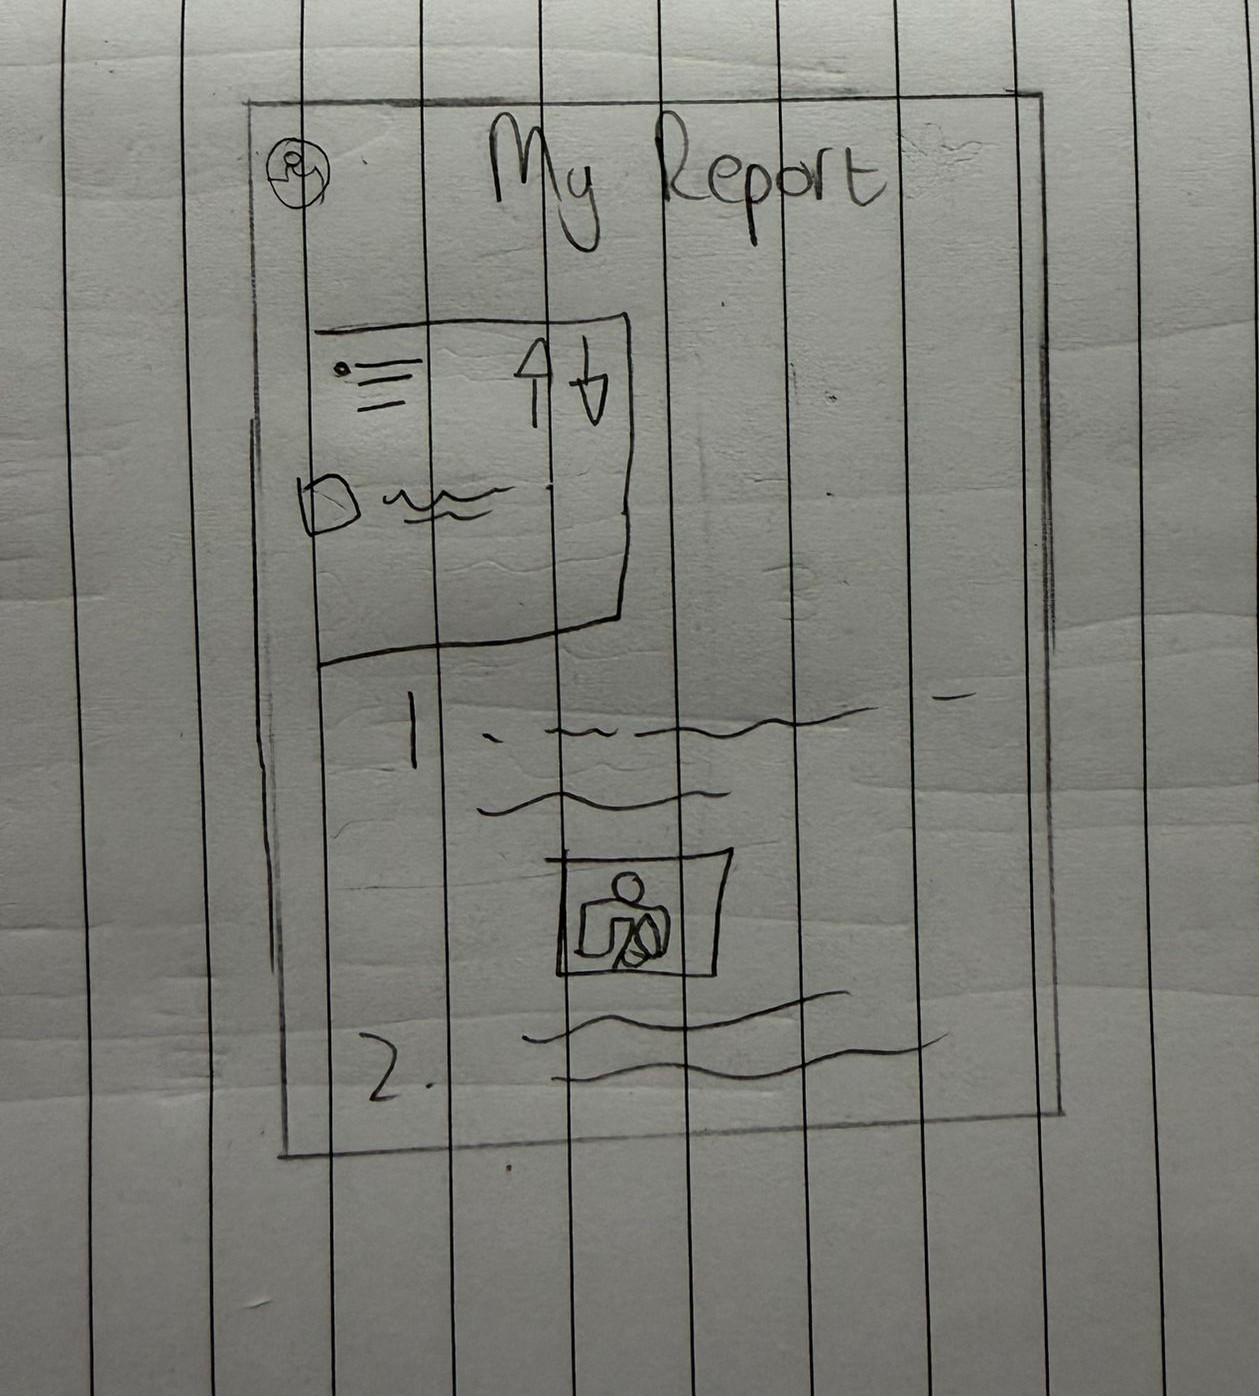 My Report
1
2.